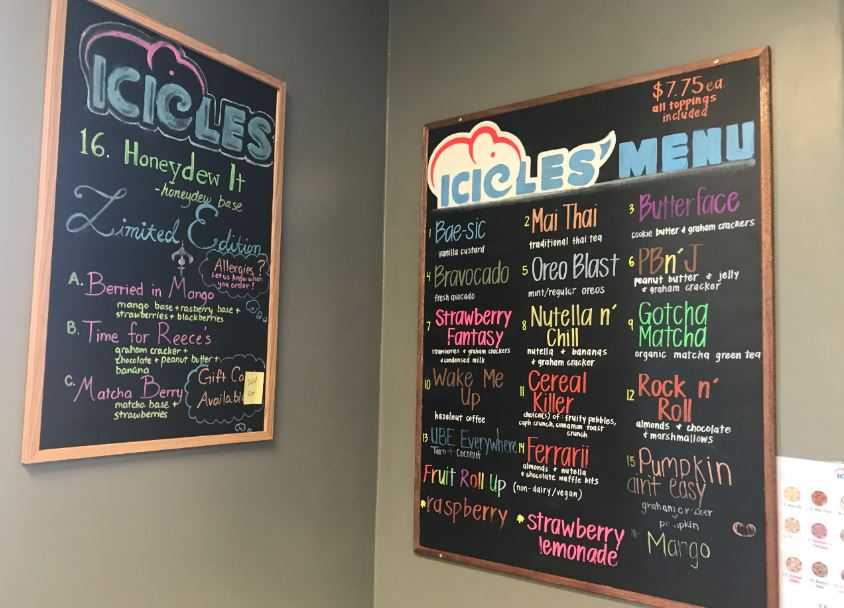 ICICLES
16. Honeydew It
-honeydew base
Limited Edition
Allergies?
Let us know when
you order!
A. Berried in Mango
mango base + rasberry base +
strawberries + blackberries
B. Time for Reece's
graham cracker +
chocolate + peanut butter +
banana
C. Matcha Berry
matcha base +
strawberries
Gift Ca
Availabl
$7.75 ea.
all toppings
included
ICICLES' MENU
1 Bae-sic
vanilla custard
2 Mai Thai
traditional thai tea
3 Butterface
cookie butter & graham crackers
4 Bravocado
fresh avocado
5 Oreo Blast
mint/regular oreos
6 PBn'J
peanut butter & jelly
& graham cracker
7 Strawberry
Fantasy
strawberries & graham crackers
& condensed milk
8 Nutella n'
Chill
nutella & bananas
& graham cracker
9 Gotcha
Matcha
organic matcha green tea
10 Wake Me
Up
hazelnut coffee
11 Cereal
Killer
choice(s) of: fruity pebbles,
capn crunch, cinnamon toast
crunch
12 Rock n'
Roll
almonds & chocolate
& marshmallows
13 UBE Everywhere
Taro + Coconut
14 Ferrarii
almonds & nutella
& chocolate waffle bits
15 Pumpkin
aint easy
pumpkin
Fruit Roll Up (non-dairy/vegan)
*raspberry
*strawberry
lemonade
* Mango